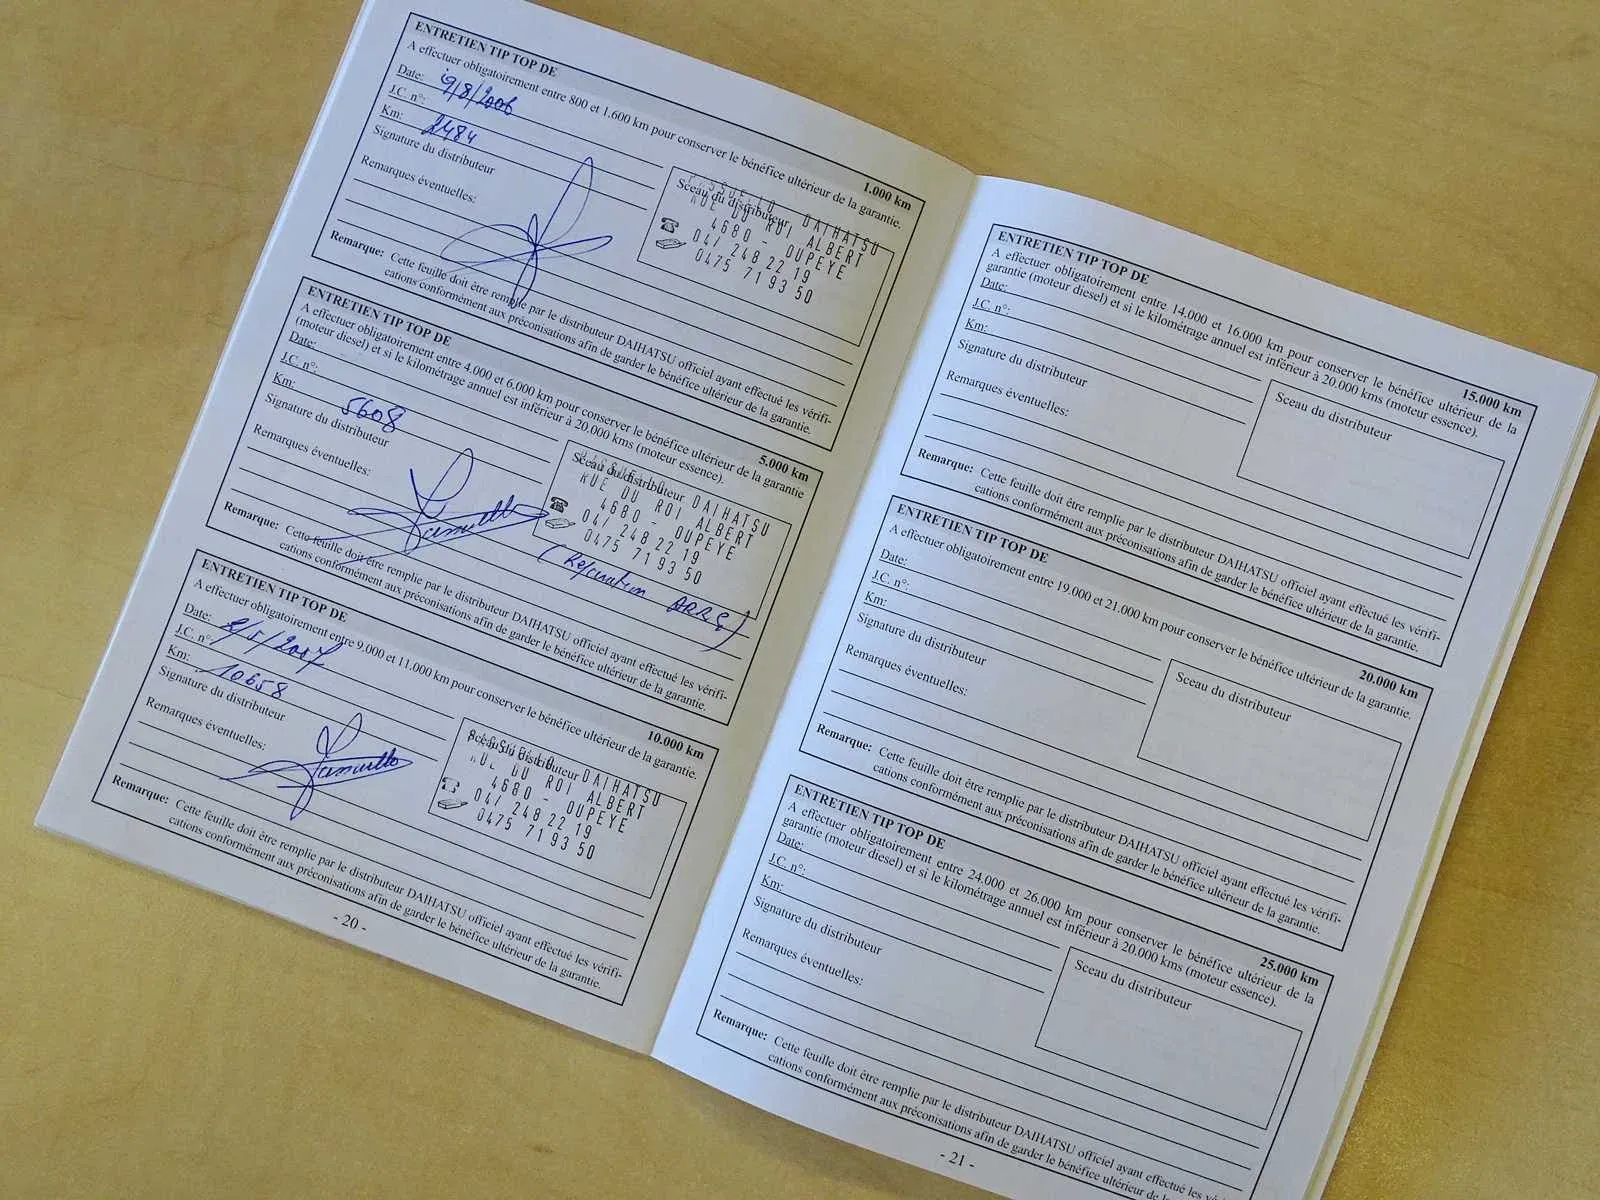 ENTRETIEN TIP TOP DE
1.000 km
A effectuer obligatoirement entre 800 et 1.600 km pour conserver le bénéfice ultérieur de la garantie.
Date: 9/8/2006
J.C. n°:
Km: 2484
Signature du distributeur
Sceau du distributeur
DAIHATSU
RUE DU ROI ALBERT
4680 - OUPEYE
04/ 248 22 19
0475 71 93 50
Remarques éventuelles:
Remarque: Cette feuille doit être remplie par le distributeur DAIHATSU officiel ayant effectué les vérifi-
cations conformément aux préconisations afin de garder le bénéfice ultérieur de la garantie.
ENTRETIEN TIP TOP DE
5.000 km
A effectuer obligatoirement entre 4.000 et 6.000 km pour conserver le bénéfice ultérieur de la garantie
(moteur diesel) et si le kilométrage annuel est inférieur à 20.000 kms (moteur essence).
Date:
J.C. n°:
Km: 5608
Signature du distributeur
Sceau du distributeur
DAIHATSU
RUE DU ROI ALBERT
4680 - OUPEYE
04/ 248 22 19
0475 71 93 50
Remarques éventuelles:
Remarque: Cette feuille doit être remplie par le distributeur DAIHATSU officiel ayant effectué les vérifi-
cations conformément aux préconisations afin de garder le bénéfice ultérieur de la garantie.
ENTRETIEN TIP TOP DE
10.000 km
A effectuer obligatoirement entre 9.000 et 11.000 km pour conserver le bénéfice ultérieur de la garantie.
Date: 2/5/2007
J.C. n°:
Km: 10658
Signature du distributeur
Sceau du distributeur
DAIHATSU
RUE DU ROI ALBERT
4680 - OUPEYE
04/ 248 22 19
0475 71 93 50
Remarques éventuelles:
Remarque: Cette feuille doit être remplie par le distributeur DAIHATSU officiel ayant effectué les vérifi-
cations conformément aux préconisations afin de garder le bénéfice ultérieur de la garantie.
- 20 -
ENTRETIEN TIP TOP DE
15.000 km
A effectuer obligatoirement entre 14.000 et 16.000 km pour conserver le bénéfice ultérieur de la
garantie (moteur diesel) et si le kilométrage annuel est inférieur à 20.000 kms (moteur essence).
Date:
J.C. n°:
Km:
Signature du distributeur
Sceau du distributeur
Remarques éventuelles:
Remarque: Cette feuille doit être remplie par le distributeur DAIHATSU officiel ayant effectué les vérifi-
cations conformément aux préconisations afin de garder le bénéfice ultérieur de la garantie.
ENTRETIEN TIP TOP DE
20.000 km
A effectuer obligatoirement entre 19.000 et 21.000 km pour conserver le bénéfice ultérieur de la garantie.
Date:
J.C. n°:
Km:
Signature du distributeur
Sceau du distributeur
Remarques éventuelles:
Remarque: Cette feuille doit être remplie par le distributeur DAIHATSU officiel ayant effectué les vérifi-
cations conformément aux préconisations afin de garder le bénéfice ultérieur de la garantie.
ENTRETIEN TIP TOP DE
25.000 km
A effectuer obligatoirement entre 24.000 et 26.000 km pour conserver le bénéfice ultérieur de la
garantie (moteur diesel) et si le kilométrage annuel est inférieur à 20.000 kms (moteur essence).
Date:
J.C. n°:
Km:
Signature du distributeur
Sceau du distributeur
Remarques éventuelles:
Remarque: Cette feuille doit être remplie par le distributeur DAIHATSU officiel ayant effectué les vérifi-
cations conformément aux préconisations afin de garder le bénéfice ultérieur de la garantie.
- 21 -